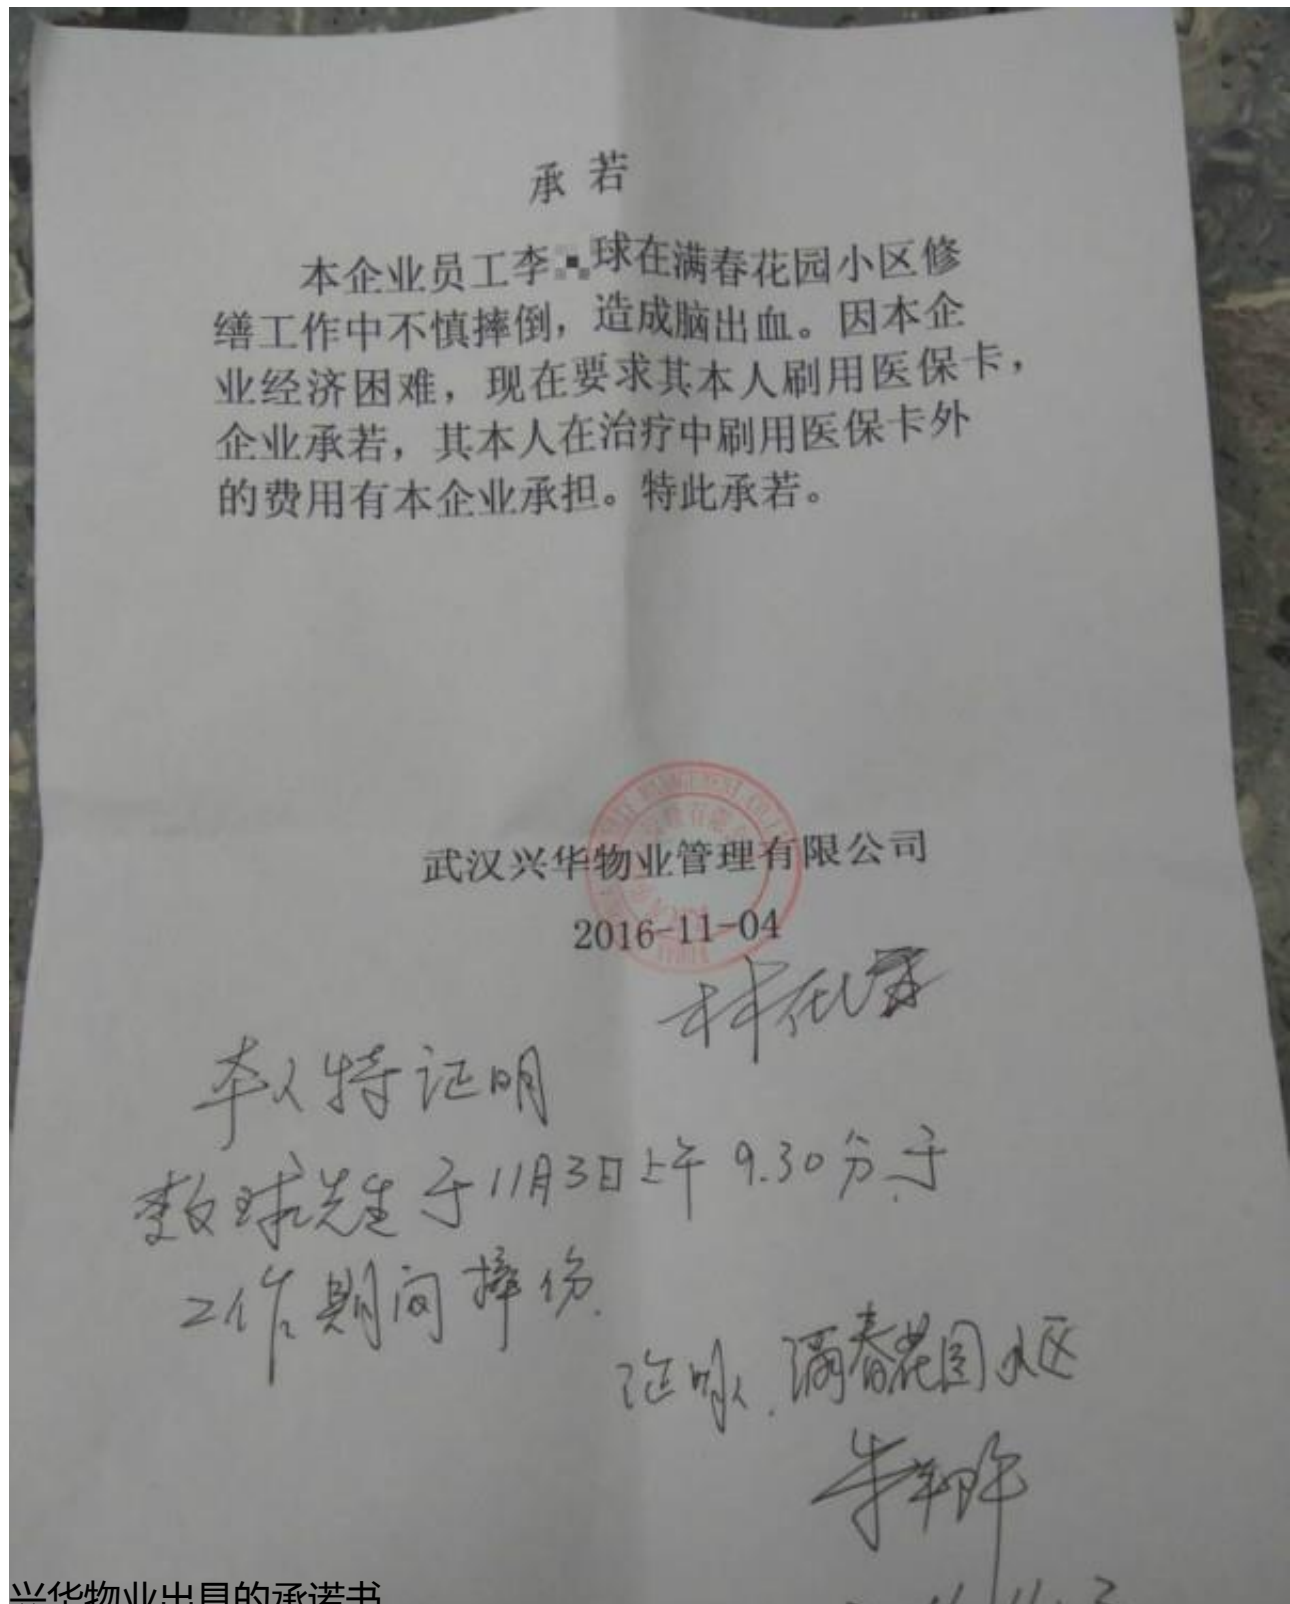 承若
本企业员工李 球在满春花园小区修
缮工作中不慎摔倒，造成脑出血。因本企
业经济困难，现在要求其本人刷用医保卡，
企业承若，其本人在治疗中刷用医保卡外
的费用有本企业承担。特此承若。
武汉兴华物业管理有限公司
2016-11-04
本人特证明
球先生于11月3日上午9.30分.于
工作期间摔伤.
证明人.满春花园小区
兴华物业出具的承诺书